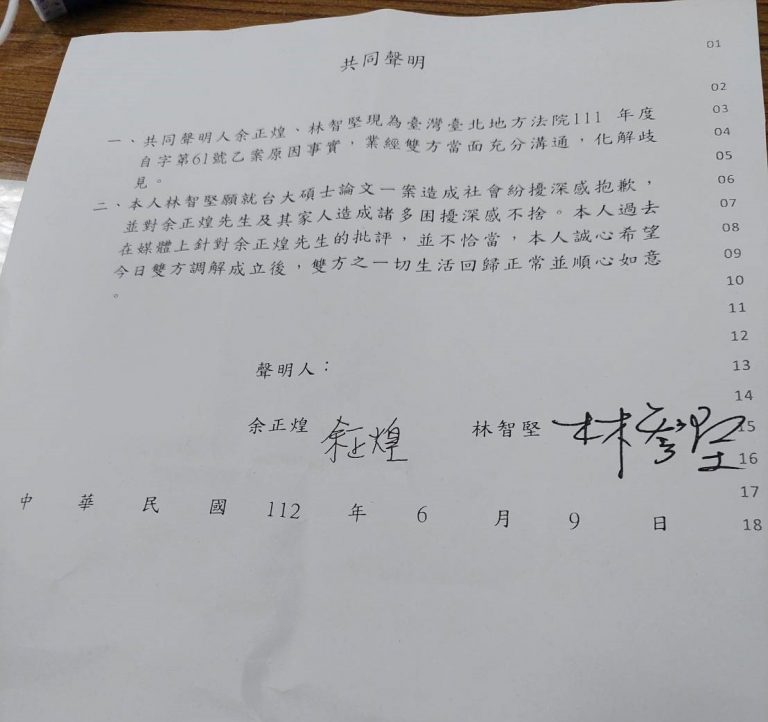 共同聲明
一、共同聲明人余正煌、林智堅現為臺灣臺北地方法院111 年度
自字第61號乙案原因事實，業經雙方當面充分溝通，化解歧
見。
二、本人林智堅願就台大碩士論文一案造成社會紛擾深感抱歉，
並對余正煌先生及其家人造成諸多困擾深感不捨。本人過去
在媒體上針對余正煌先生的批評，並不恰當，本人誠心希望
今日雙方調解成立後，雙方之一切生活回歸正常並順心如意
。
聲明人：
余正煌 余正煌 林智堅 林智堅
中華民國 112 年 6 月 9 日
01
02
03
04
05
06
07
08
09
10
11
12
13
14
15
16
17
18